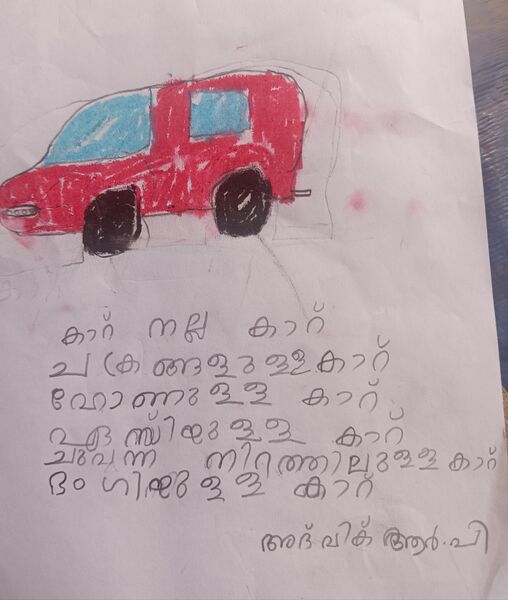 കാറ് നല്ല കാറ്
ചക്രങ്ങളുള്ള കാറ്
ഹോണുള്ള കാറ്
ഏസിയുള്ള കാറ്
ചുവന്ന നിറത്തിലുള്ള കാറ്
ഭംഗിയുള്ള കാറ്
അദ്വിക് ആർ.പി